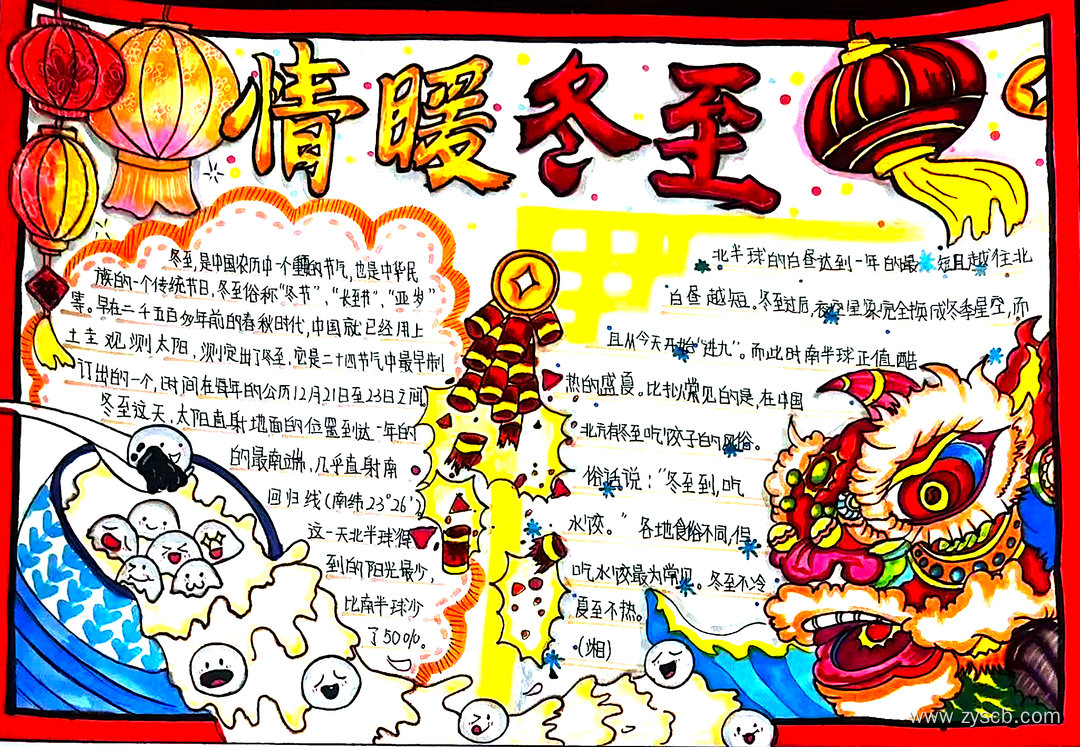 情暖冬至
冬至,是中国农历中一个重要的节气,也是中华民
族的一个传统节日,冬至俗称“冬节”、“长至节”、“亚岁”
等。早在二千五百多年前的春秋时代,中国就已经用上
土圭观测太阳,测定出了冬至,它是二十四节气中最早制
订出的一个,时间在每年的公历12月21日至23日之间,
冬至这天,太阳直射地面的位置到达一年的
的最南端,几乎直射南
回归线(南纬23°26')
这一天北半球得
到的阳光最少,
比南半球少
了50%。
北半球的白昼达到一年的最短且越往北
白昼越短。冬至过后,夜空星象完全换成冬季星空,而
且从今天开始“进九”。而此时南半球正值酷
热的盛夏。比较常见的是,在中国
北方有冬至吃饺子的风俗。
俗话说:“冬至到,吃
水饺。”各地食俗不同,但
吃水饺最为常见。冬至不冷
夏至不热。
(湘)
www.zyscb.com